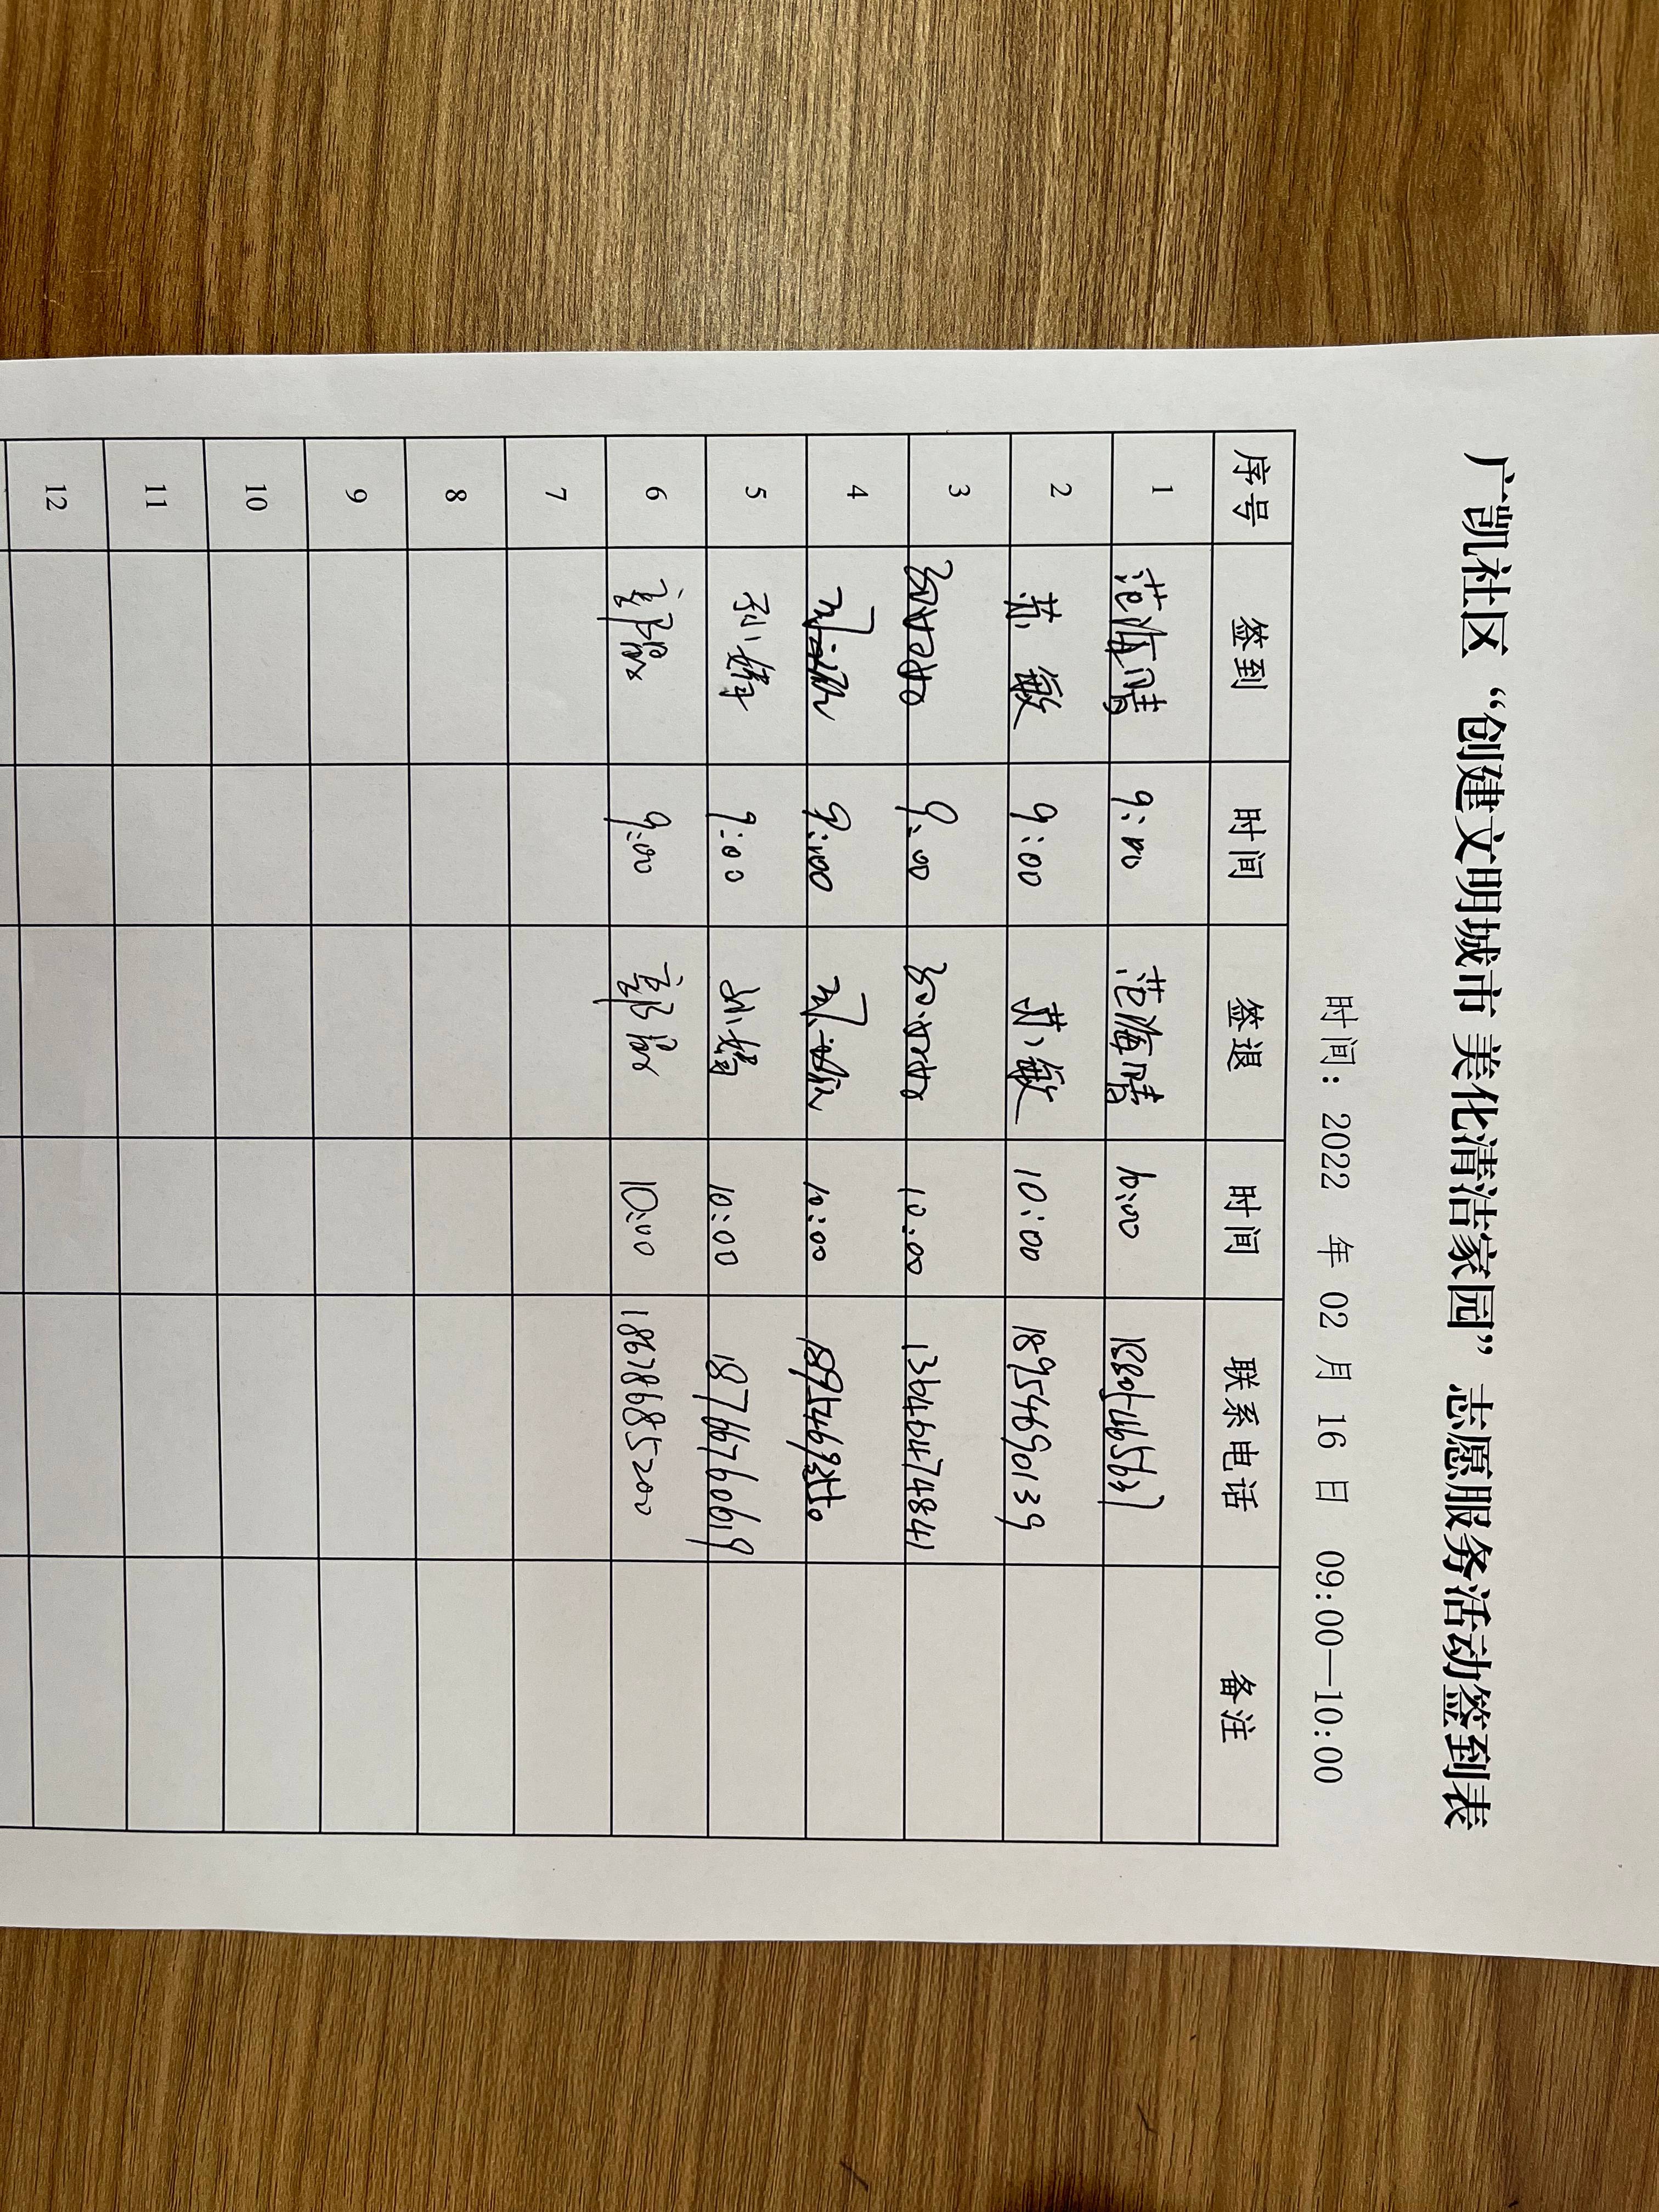 广凯社区“创建文明城市 美化清洁家园”志愿服务活动签到表
时间：2022 年 02 月 16 日 09:00—10:00
序号 签到 时间 签退 时间 联系电话 备注
1 范海晴 9:00 范海晴 10:00
2 苏敏 9:00 苏敏 10:00 18954690139
3 9:00 10:00 13646474841
4 9:00 10:00
5 9:00 10:00 18766760619
6 9:00 10:00 18678685200
7
8
9
10
11
12